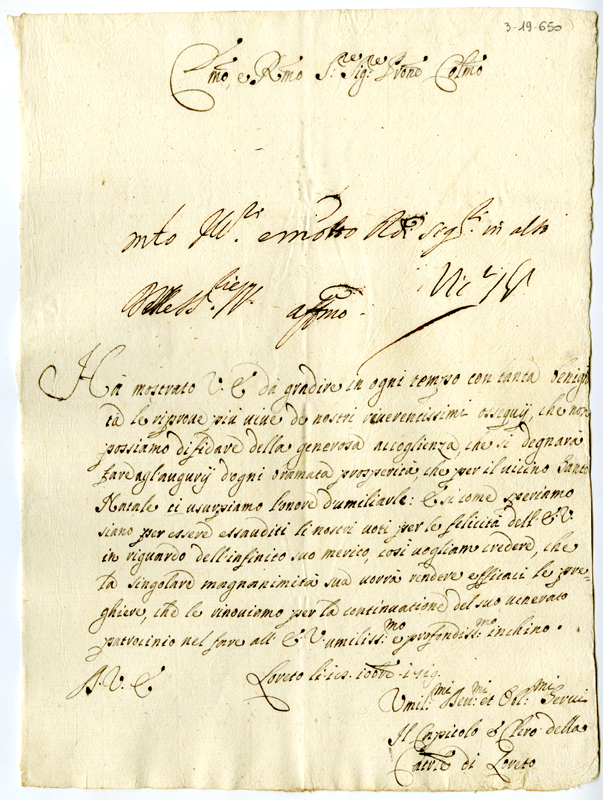 3-19-650
Emo, e Rmo Sre Sigre Prone Colmo
mto Ill.ri e molto Rdi sigri in alti
affmo.
Hà mostrato V. E. dà gradire in ogni tempo con tanta benigni
tà le riprove più vive de nostri riverentissimi ossequij, che non
possiamo diffidare della generosa accoglienza, che si degnarà
fare agl'augurij d'ogni bramata prosperità, che per il vicino Santo
Natale ci usurpiamo l'onore d'umiliarle: E si come speriamo
siano per essere essauditi li nostri voti per le felicità dell'E.V.
in riguardo dell'infinito suo merito, così vogliam credere, che
la singolare magnanimità sua vorrà rendere efficaci le pre=
ghiere, che le rinoviamo per la continuatione del suo venerato
patrocinio nel fare all'E.V. umiliss:mo e profondiss:mo inchino.
D. V. E. Loreto li
Umil:mi Deu:mi et Obl:mi Serui
Il Capitolo e Clero della
Catle di Loreto